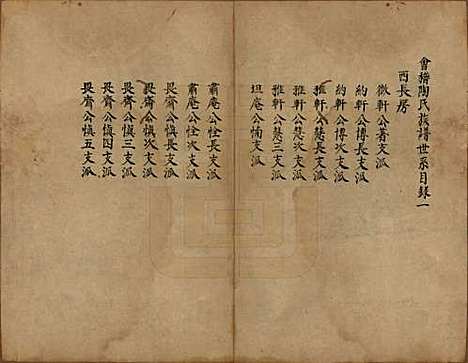 會稽陶氏族譜世系目錄一
西長房
微軒公著支派
約軒公博長支派
約軒公博次支派
雅軒公慧長支派
雅軒公慧次支派
雅軒公慧三支派
坦庵公愐支派
肅庵公恮長支派
肅庵公恮次支派
畏齋公慎長支派
畏齋公慎次支派
畏齋公慎三支派
畏齋公慎四支派
畏齋公慎五支派